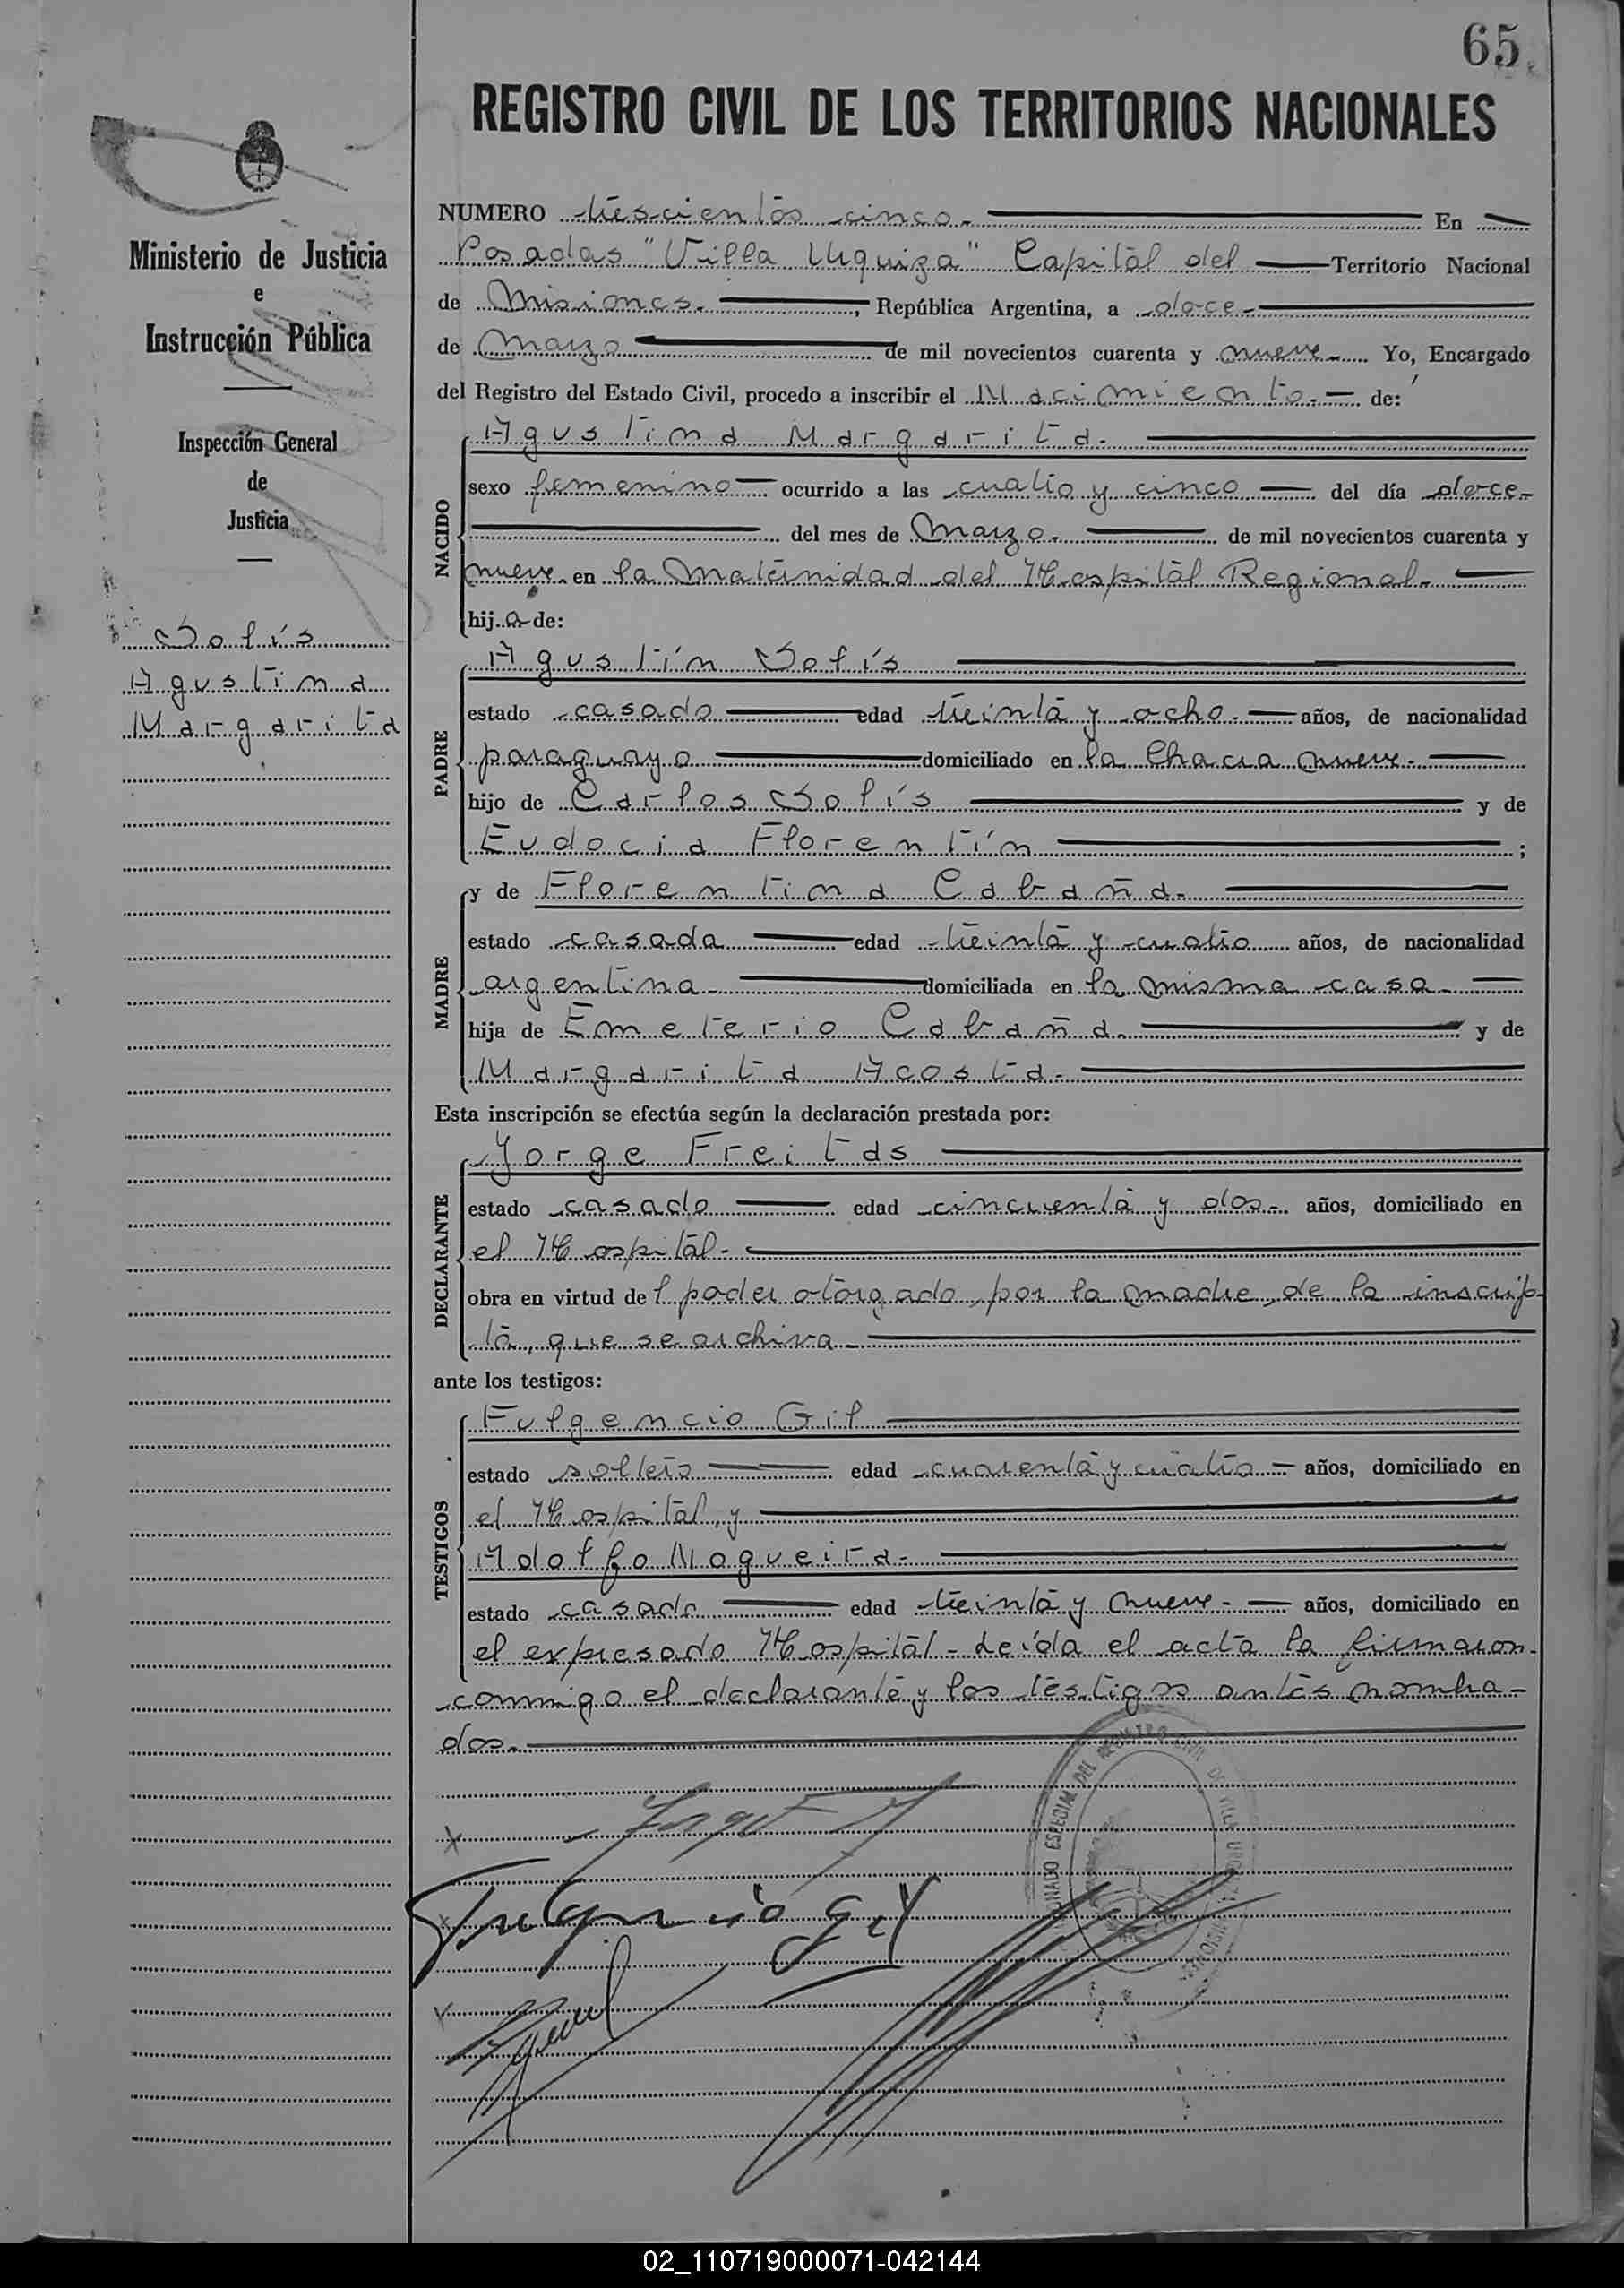 65
REGISTRO CIVIL DE LOS TERRITORIOS NACIONALES
Ministerio de Justicia
e
Instrucción Pública
Inspección General
de
Justicia
Solís
Agustina
Margarita
NUMERO trescientos cinco.- En
Posadas "Villa Urquiza" Capital del Territorio Nacional
de Misiones. , República Argentina, a doce-
de Marzo de mil novecientos cuarenta y nueve- Yo, Encargado
del Registro del Estado Civil, procedo a inscribir el Nacimiento.- de:
NACIDO
Agustina Margarita.
sexo femenino ocurrido a las cuatro y cinco del día doce-
del mes de Marzo. de mil novecientos cuarenta y
nueve- en la Maternidad del Hospital Regional.
hija de:
PADRE
Agustín Solís
estado casado edad treinta y ocho.- años, de nacionalidad
paraguayo domiciliado en la Chacra nueve-
hijo de Carlos Solís y de
Eudocia Florentín ;
MADRE
y de Florentina Cabaña.
estado casada edad treinta y cuatro años, de nacionalidad
argentina- domiciliada en la misma casa-
hija de Emeterio Cabaña. y de
Margarita Acosta.
Esta inscripción se efectúa según la declaración prestada por:
DECLARANTE
Jorge Freitas
estado casado edad cincuenta y dos- años, domiciliado en
el Hospital-
obra en virtud del poder otorgado por la madre, de la inscrip-
ta, que se archiva-
ante los testigos:
TESTIGOS
Fulgencio Gil
estado soltero edad cuarenta y cuatro años, domiciliado en
el Hospital, y
Adolfo Nogueira-
estado casado edad treinta y nueve- años, domiciliado en
el expresado Hospital- Leída el acta la firmaron-
conmigo el declarante y los testigos antes nombra-
dos.
Fulgencio Gil
02_110719000071-042144